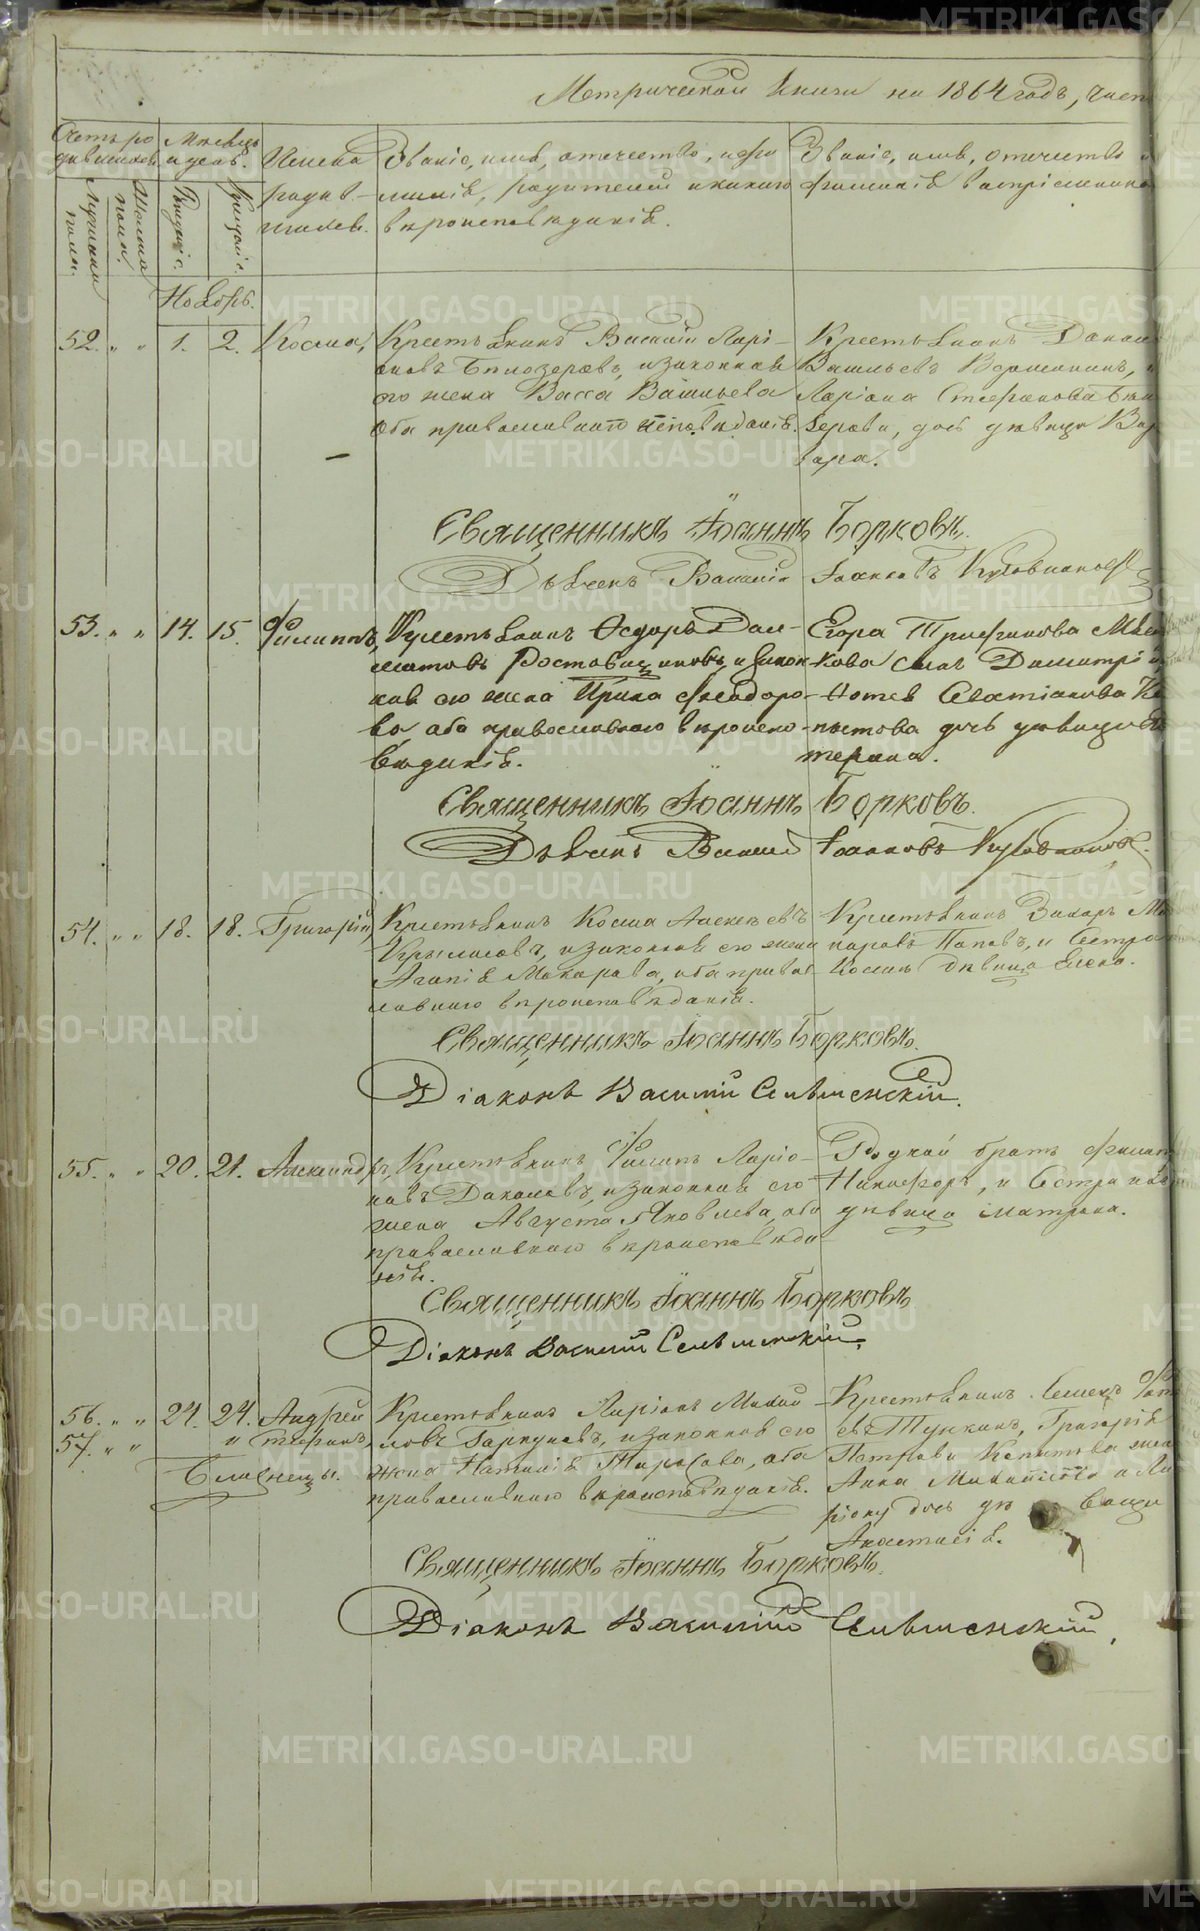 Метрической книги на 1864 годъ, част
Счетъ ро
дившихся.
Мѣсяцъ
и день.
Имена
родив-
шихся.
Званіе, имя, отчество, и фа
милія, родителей и какого
вѣроисповѣданія.
Званіе, имя, отчество и
фамилія воспріемнико
Мужеска
пола.
Женска
пола.
Рожденія.
Крещенія.
Ноябрь.
52. " " 1. 2. Косма,
Крестьянинъ Василій Ларі-
оновъ Бѣлозеровъ, и законная
его жена Васса Васильева
Оба православнаго исповѣданія.
Крестьянинъ
Васильевъ
Ларіона Стефанова Бѣло
зерова, дочь дѣвица Вар
вара.
Священникъ Іоаннъ Борковъ.
Дьячекъ Василій Іоанновъ
53. " " 14. 15. Филиппъ,
Крестьянинъ Ѳедоръ Дал-
матовъ Ростовщиковъ, и закон
ная его жена Ирина Ѳеодоро-
ва, оба православнаго вѣроиспо-
вѣданія.
Егора Трифонова
кова сынъ Димитрій
дочь дѣвица
терина.
Священникъ Іоаннъ Борковъ.
Дьячекъ Василій Іоанновъ
54. " " 18. 18. Григорій,
Крестьянинъ Косма Алексѣевъ
и законная его жена
Агапія Макарова, оба правос-
лавнаго вѣроисповѣданія.
Крестьянинъ Захаръ Ма
каровъ Поповъ, и Сестра
Космы дѣвица Елена.
Священникъ Іоаннъ Борковъ.
Діаконъ Василій Сельменскій.
55. " " 20. 21. Александръ,
Крестьянинъ Филипъ Ларіо-
новъ Даниловъ, и законная его
жена Августа Яковлева, оба
православнаго вѣроисповѣда-
нія.
Родной братъ Филип
Никифоръ, и Сестра
дѣвица Матрона.
Священникъ Іоаннъ Борковъ
Діаконъ Василій Сельменскій.
56. " " 24. 24. Андрей
57. " " и Стефанъ,
Близнецы.
Крестьянинъ Ларіонъ Михай
ловъ и законная его
жена Наталія Тарасова, оба
православнаго вѣроисповѣданія.
Крестьянинъ Семенъ
евъ Григорія
Петрова жена
Анна и Ла
ріону дочь дѣвица
Анастасія.
Священникъ Іоаннъ Борковъ.
Діаконъ Василій Сельменскій.